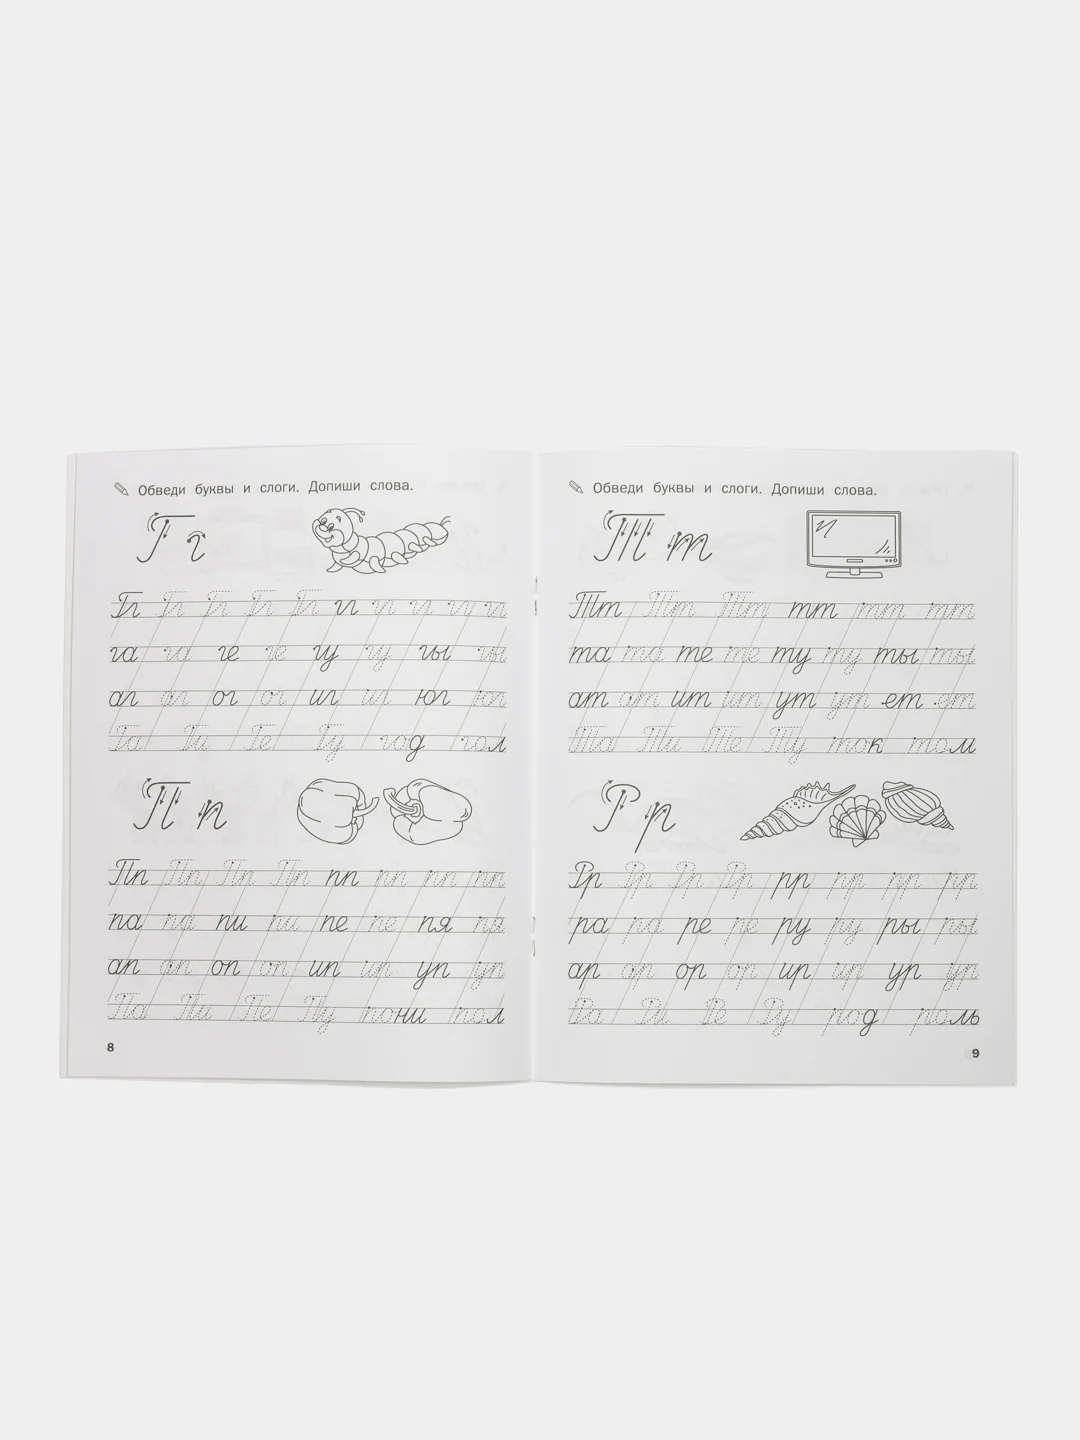 Обведи буквы и слоги. Допиши слова.
Г г
Гг Гг Гг Гг Гг гг гг гг гг гг
га га ге ге гу гу гы гы
аг аг ог ог иг иг юг юг
Га Ги Ге Гу год гол
П п
Пп Пп Пп Пп пп пп пп пп
па па пи пи пе пе пя пя
ап ап оп оп ип ип уп уп
Па Пи Пе Пу пони пол
8
Обведи буквы и слоги. Допиши слова.
Т т
Тт Тт Тт тт тт тт
та та те те ту ту ты ты
ат ат ит ит ут ут ет ет
Та Ти Те Ту ток том
Р р
Рр Рр Рр Рр рр рр рр рр
ра ра ре ре ру ру ры ры
ар ар ор ор ир ир ур ур
Ра Ри Ре Ру род роль
9